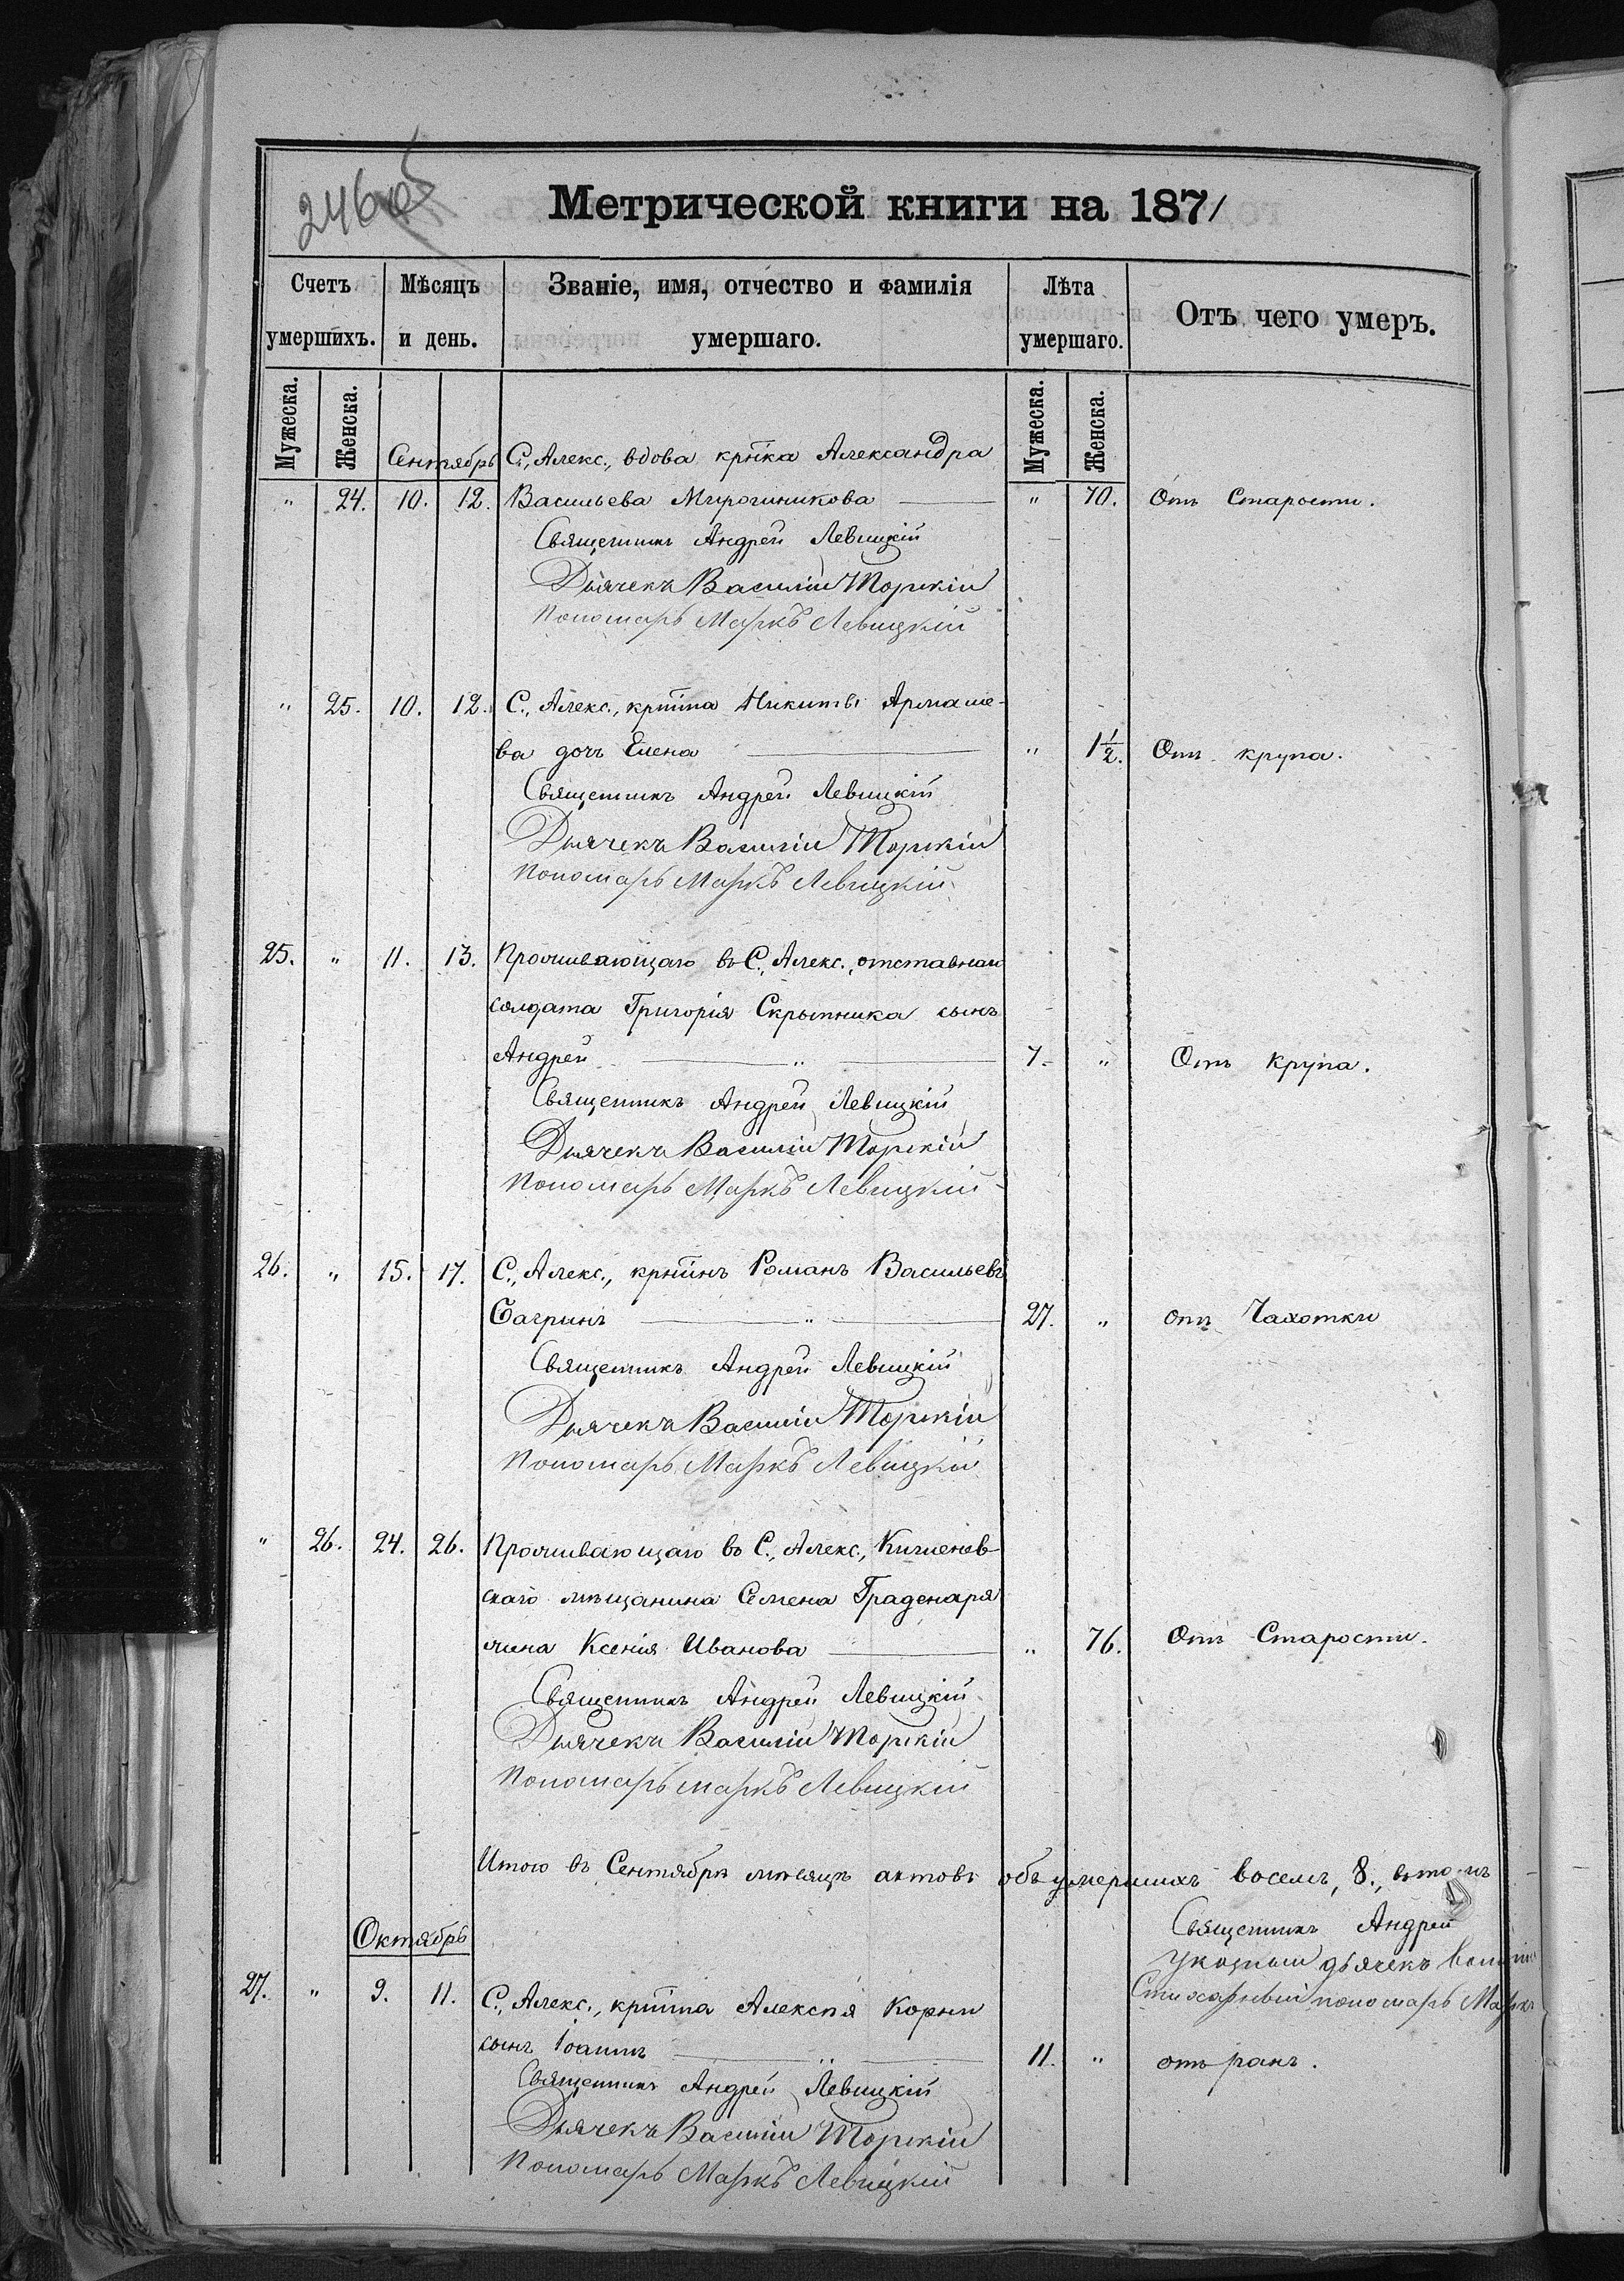 246об
Метрической книги на 1871
Счетъ умершихъ.
Мѣсяцъ и день.
Званіе, имя, отчество и фамилія умершаго.
Лѣта умершаго.
Отъ чего умеръ.
Мужеска. Женска. Мужеска. Женска.
Сентябрь С., Алекс., вдова кр҃нка Александра
" 24. 10. 12. Васильева Мирошникова " 70. Отъ Старости.
Священникъ Андрей Левицкій
Дьячекъ Василій Торскій
Пономарь Маркъ Левицкій
" 25. 10. 12. С., Алекс., кр҃тина Никиты Армаше-
ва дочь Елена " 1½. Отъ крупа.
Священникъ Андрей Левицкій
Дьячекъ Василій Торскій
Пономарь Маркъ Левицкій
25. " 11. 13. Проживающаго въ С., Алекс., отставнаго
солдата Григорія Скрыпника сынъ
Андрей " 7. " Отъ крупа.
Священникъ Андрей Левицкій
Дьячекъ Василій Торскій
Пономарь Маркъ Левицкій
26. " 15. 17. С., Алекс., кр҃тинъ Романъ Васильевъ
Багринъ " 27. " отъ Чахотки
Священникъ Андрей Левицкій
Дьячекъ Василій Торскій
Пономарь Маркъ Левицкій
" 26. 24. 26. Проживающаго въ С., Алекс., Кишенев-
скаго мѣщанина Семена Граденаря
жена Ксенія Иванова " 76. Отъ Старости.
Священникъ Андрей Левицкій
Дьячекъ Василій Торскій
Пономарь Маркъ Левицкій
Итого въ Сентябрѣ мѣсяцѣ актовъ объ умершихъ восемь, 8.,
Священникъ Андрей
Указный дьячекъ Василій
Стихарный пономарь Маркъ
Октябрь
27. " 9. 11. С., Алекс., кр҃тина Алексѣя Корни
сынъ Іоаннъ 11. " отъ ранъ.
Священникъ Андрей Левицкій
Дьячекъ Василій Торскій
Пономарь Маркъ Левицкій